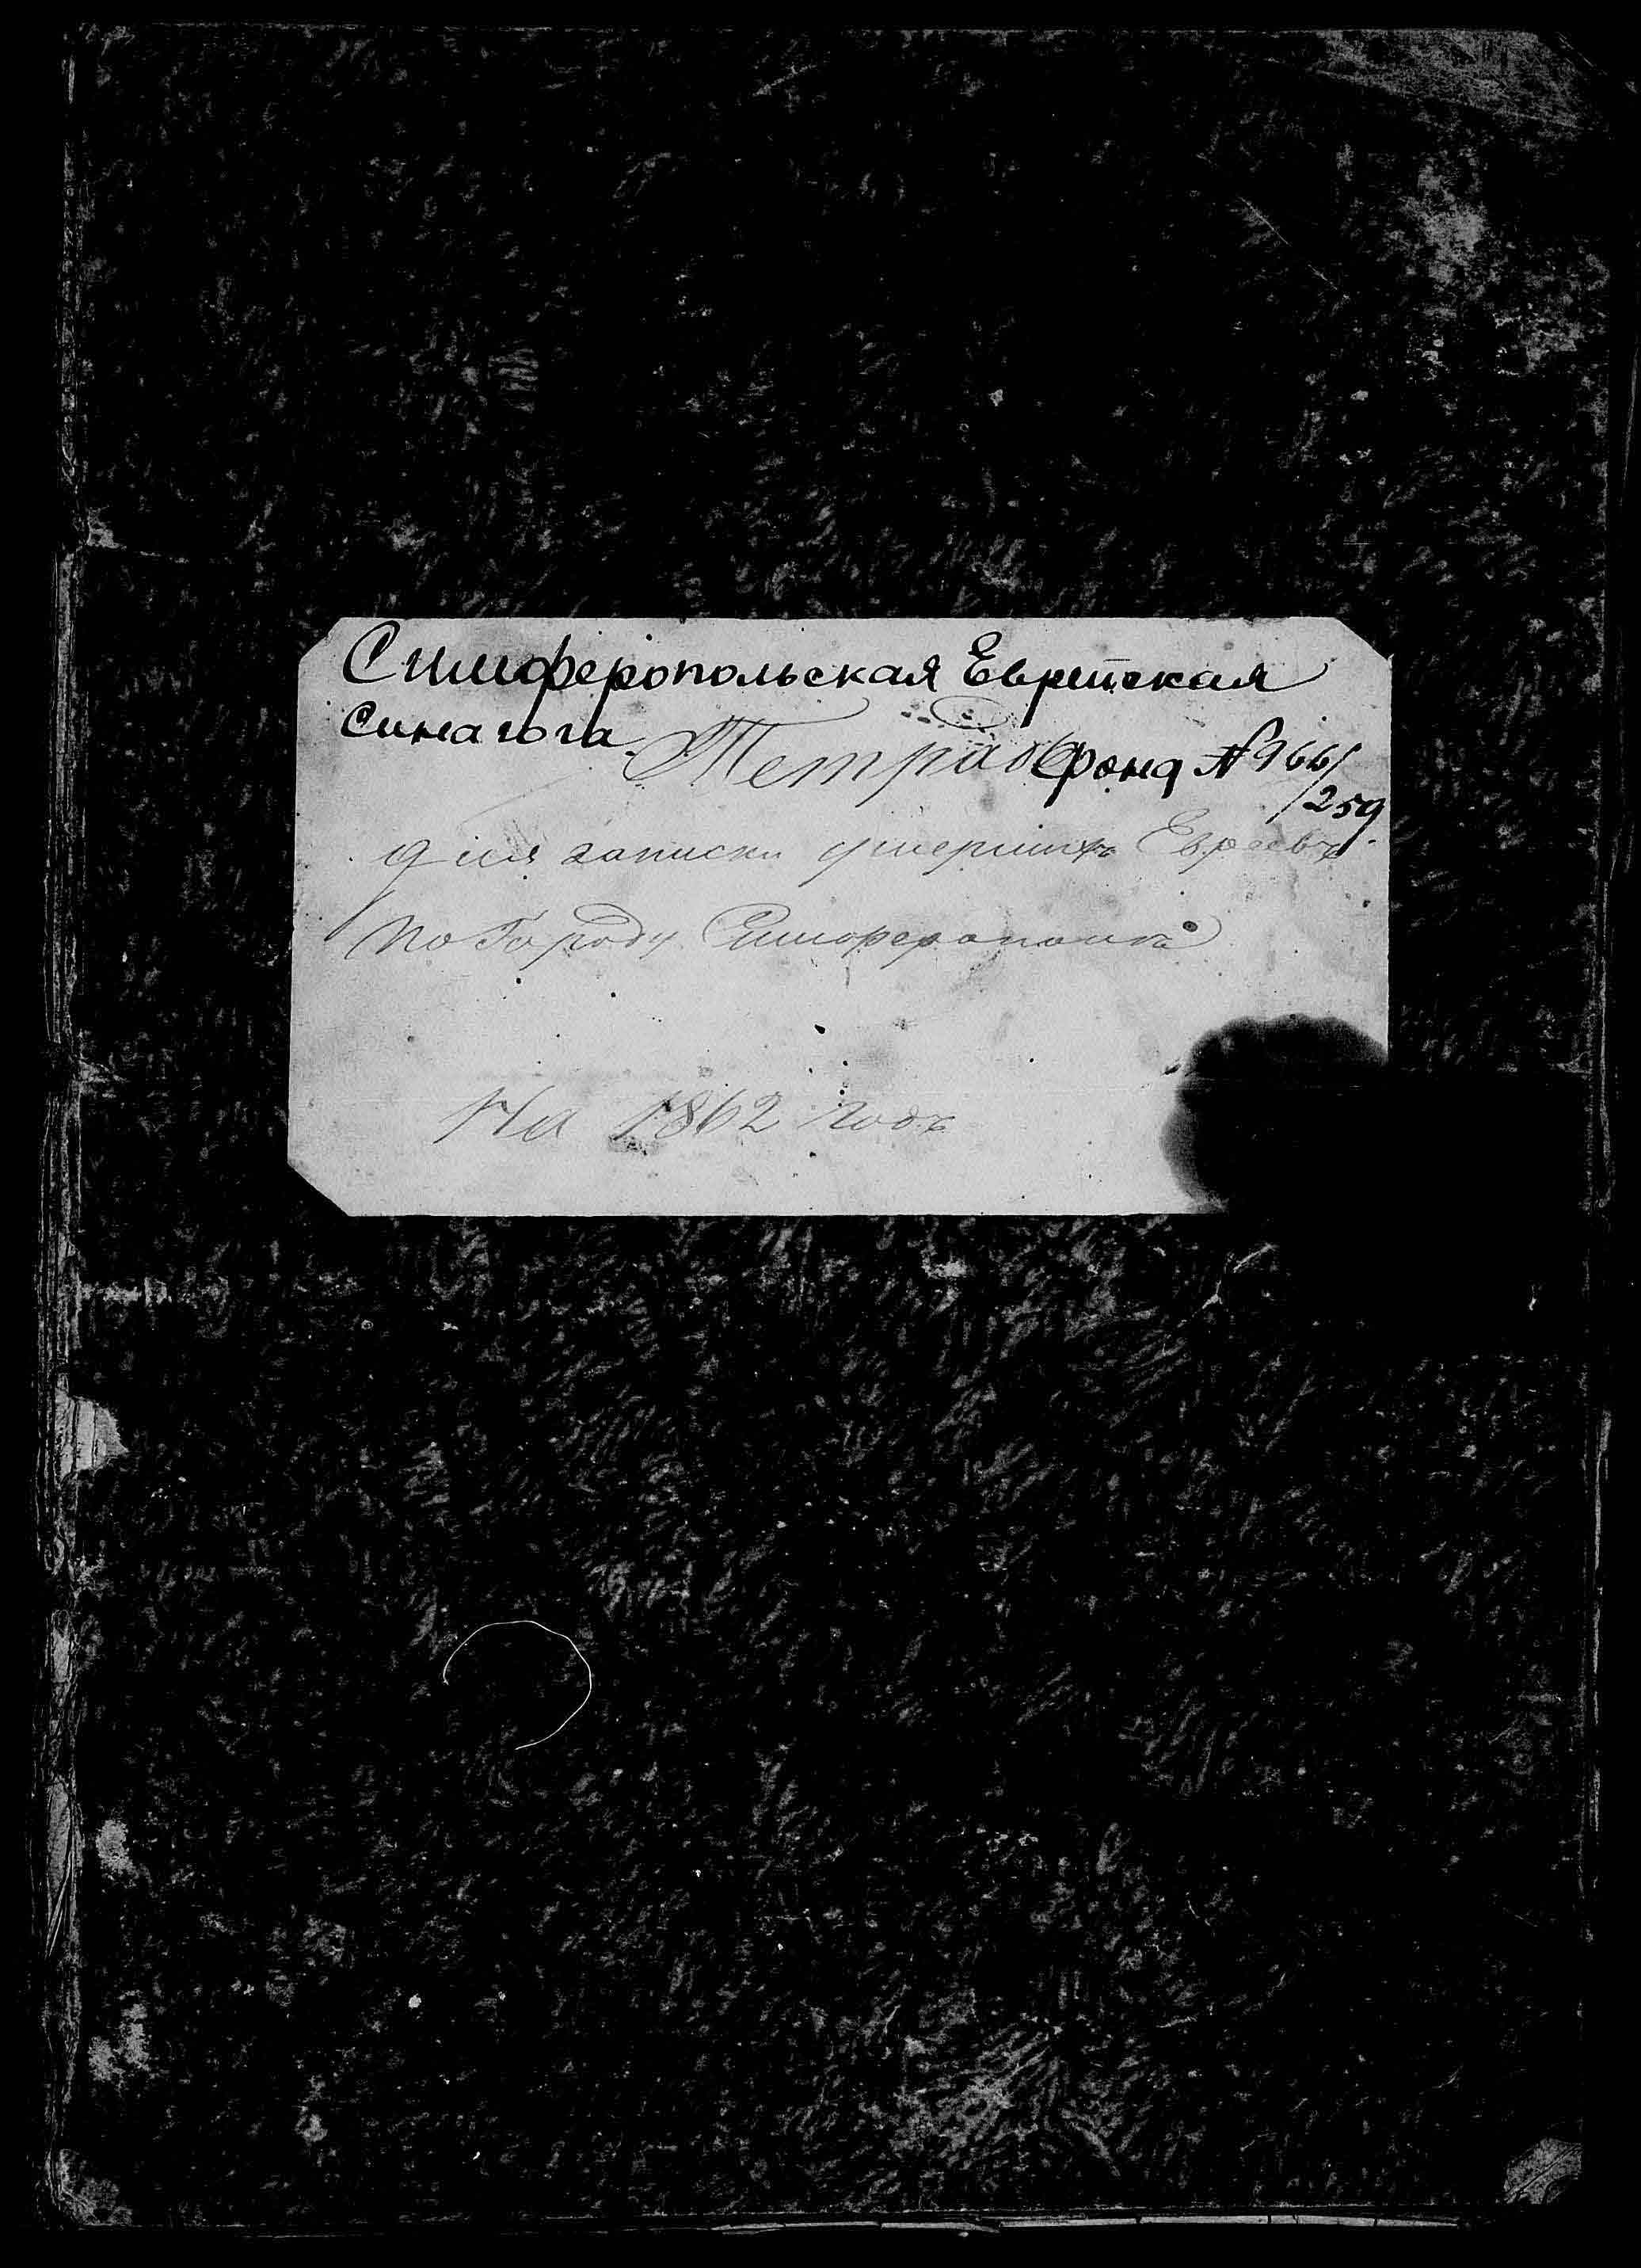 Симферопольская Еврейская
Синагога
Тетрадь Фонд № 966/
/259
для записки умершихъ Евреевъ
по Городу Симферополю
На 1862 годъ